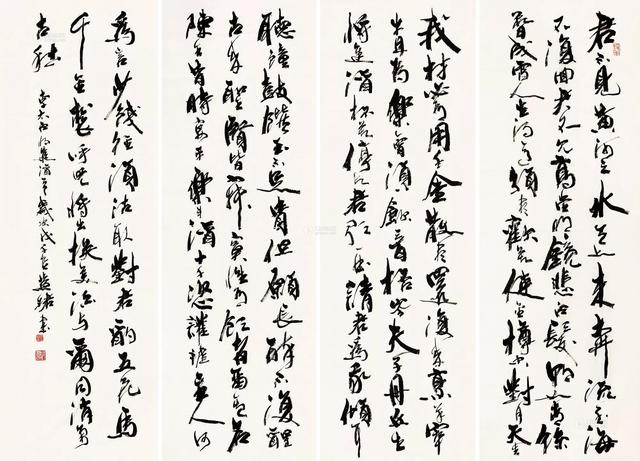 君不見黃河之水天上來奔流到海
不復回君不見高堂明鏡悲白髮朝如青絲
暮成雪人生得意須盡歡莫使金樽空對月天生
我材必有用千金散盡還復來烹羊宰
牛且為樂會須飲一百杯岑夫子丹丘生
將進酒杯莫停與君歌一曲請君為我傾耳
聽鐘鼓饌玉不足貴但願長醉不復醒
古來聖賢皆寂寞惟有飲者留其名
陳王昔時宴平樂斗酒十千恣讙謔主人何
為言少錢徑須沽取對君酌五花馬
千金裘呼兒將出換美酒與爾同消萬
古愁 李太白將進酒 歲次戊子 書